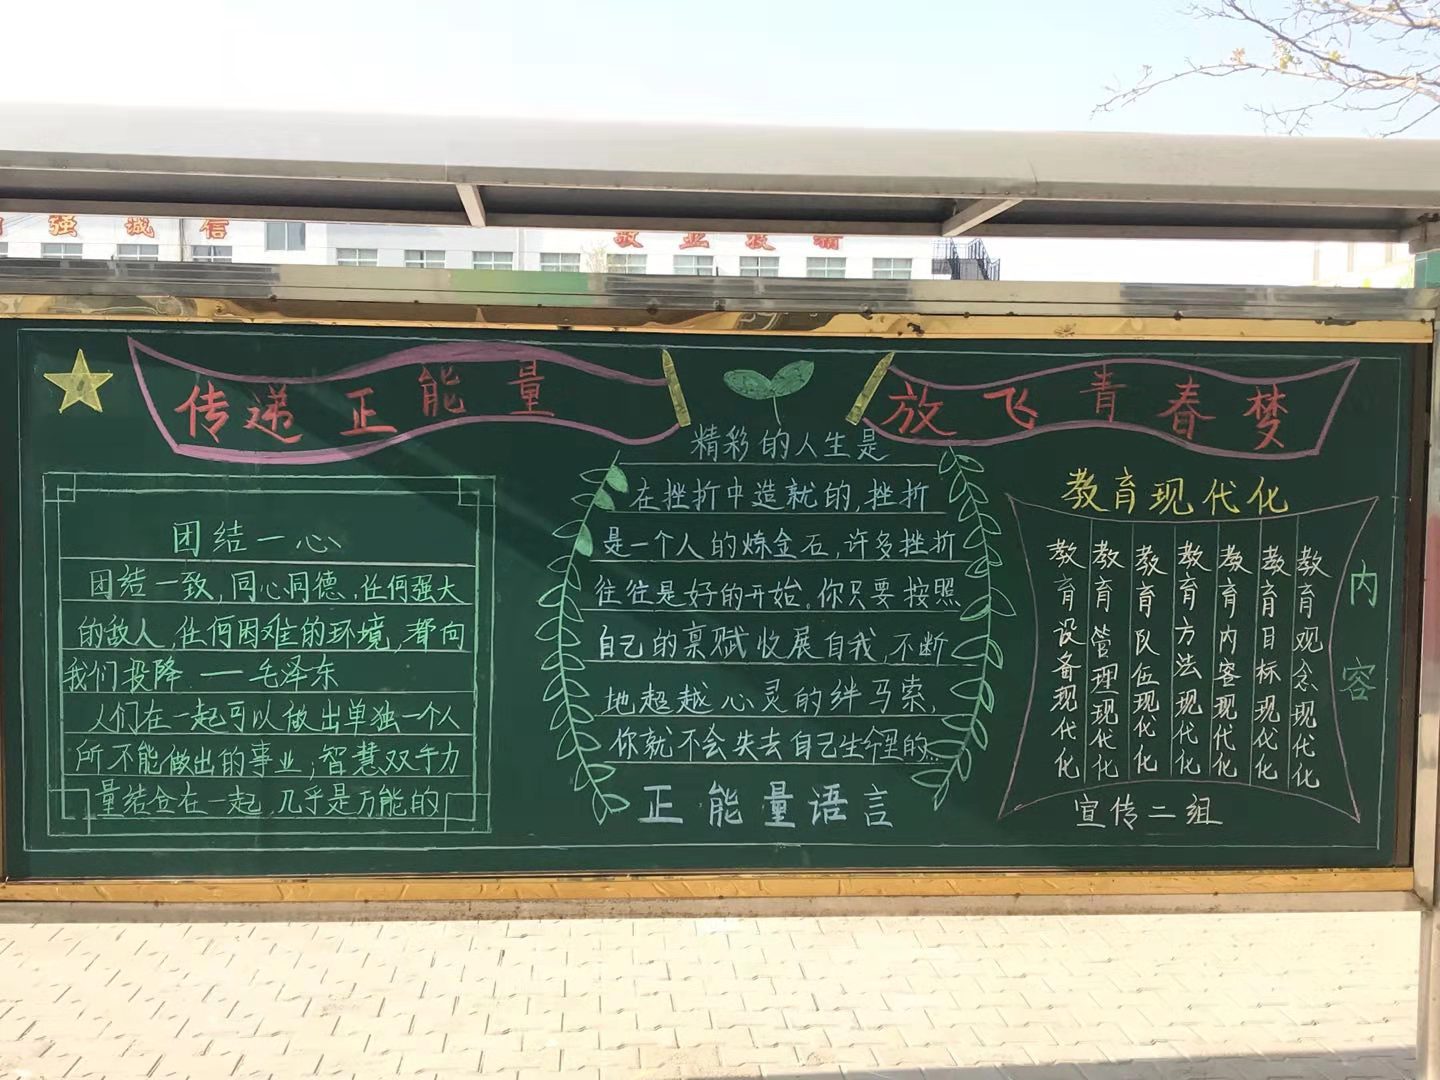 强诚信
敬业
传递正能量
放飞青春梦
团结一心
团结一致,同心同德,任何强大
的敌人,任何困难的环境,都向
我们投降.——毛泽东
人们在一起可以做出单独一个人
所不能做出的事业;智慧双手力
量结合在一起,几乎是万能的
精彩的人生是
在挫折中造就的,挫折
是一个人的炼金石,许多挫折
往往是好的开始。你只要按照
自己的禀赋收展自我,不断
地超越心灵的绊马索,
你就不会失去自己生命里的…
正能量语言
教育现代化
内容
教育观念现代化
教育目标现代化
教育内容现代化
教育方法现代化
教育队伍现代化
教育管理现代化
教育设备现代化
宣传二组